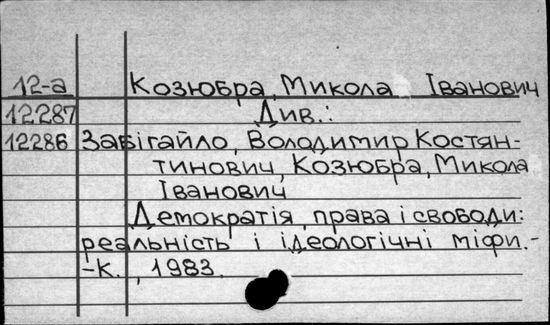 12-а Козюбра, Микола Іванович
12287 Див.:
12286 Завігайло, Володимир Костян-
тинович, Козюбра, Микола
Іванович
Демократія, права і свободи:
реальність і ідеологічні міфи.-
-К., 1983.